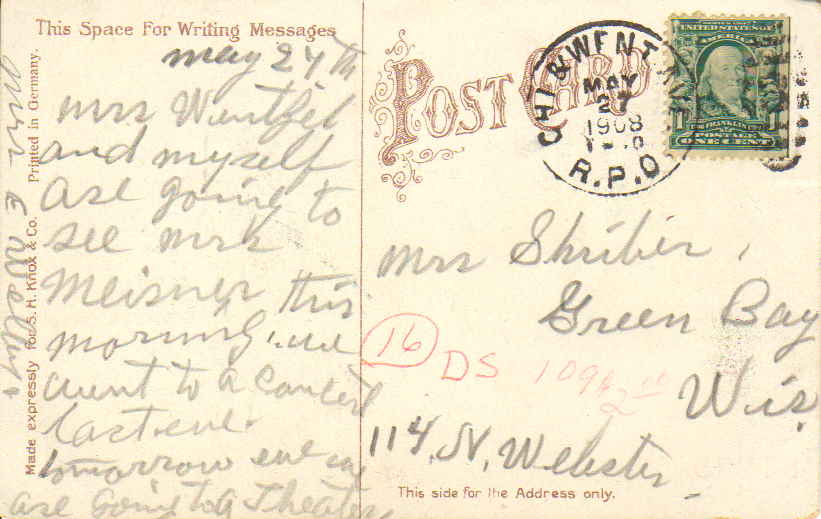 This Space For Writing Messages
may 27th
Mrs
and myself
are going to
see Mrs
Meisner this
morning we
went to a concert
last eve
tomorrow eve we
are going to a Theater
Mrs E
Made expressly for S. H. Knox & Co. Printed in Germany.
POST CARD
CHI & WENT
MAY
27
1908
R.P.O.
SERIES 1902
UNITED STATES OF
AMERICA
1 1
FRANKLIN
POSTAGE
ONE CENT
Mrs Shriber,
Green Bay
Wis
114 N. Webster
16
DS 109
This side for the Address only.